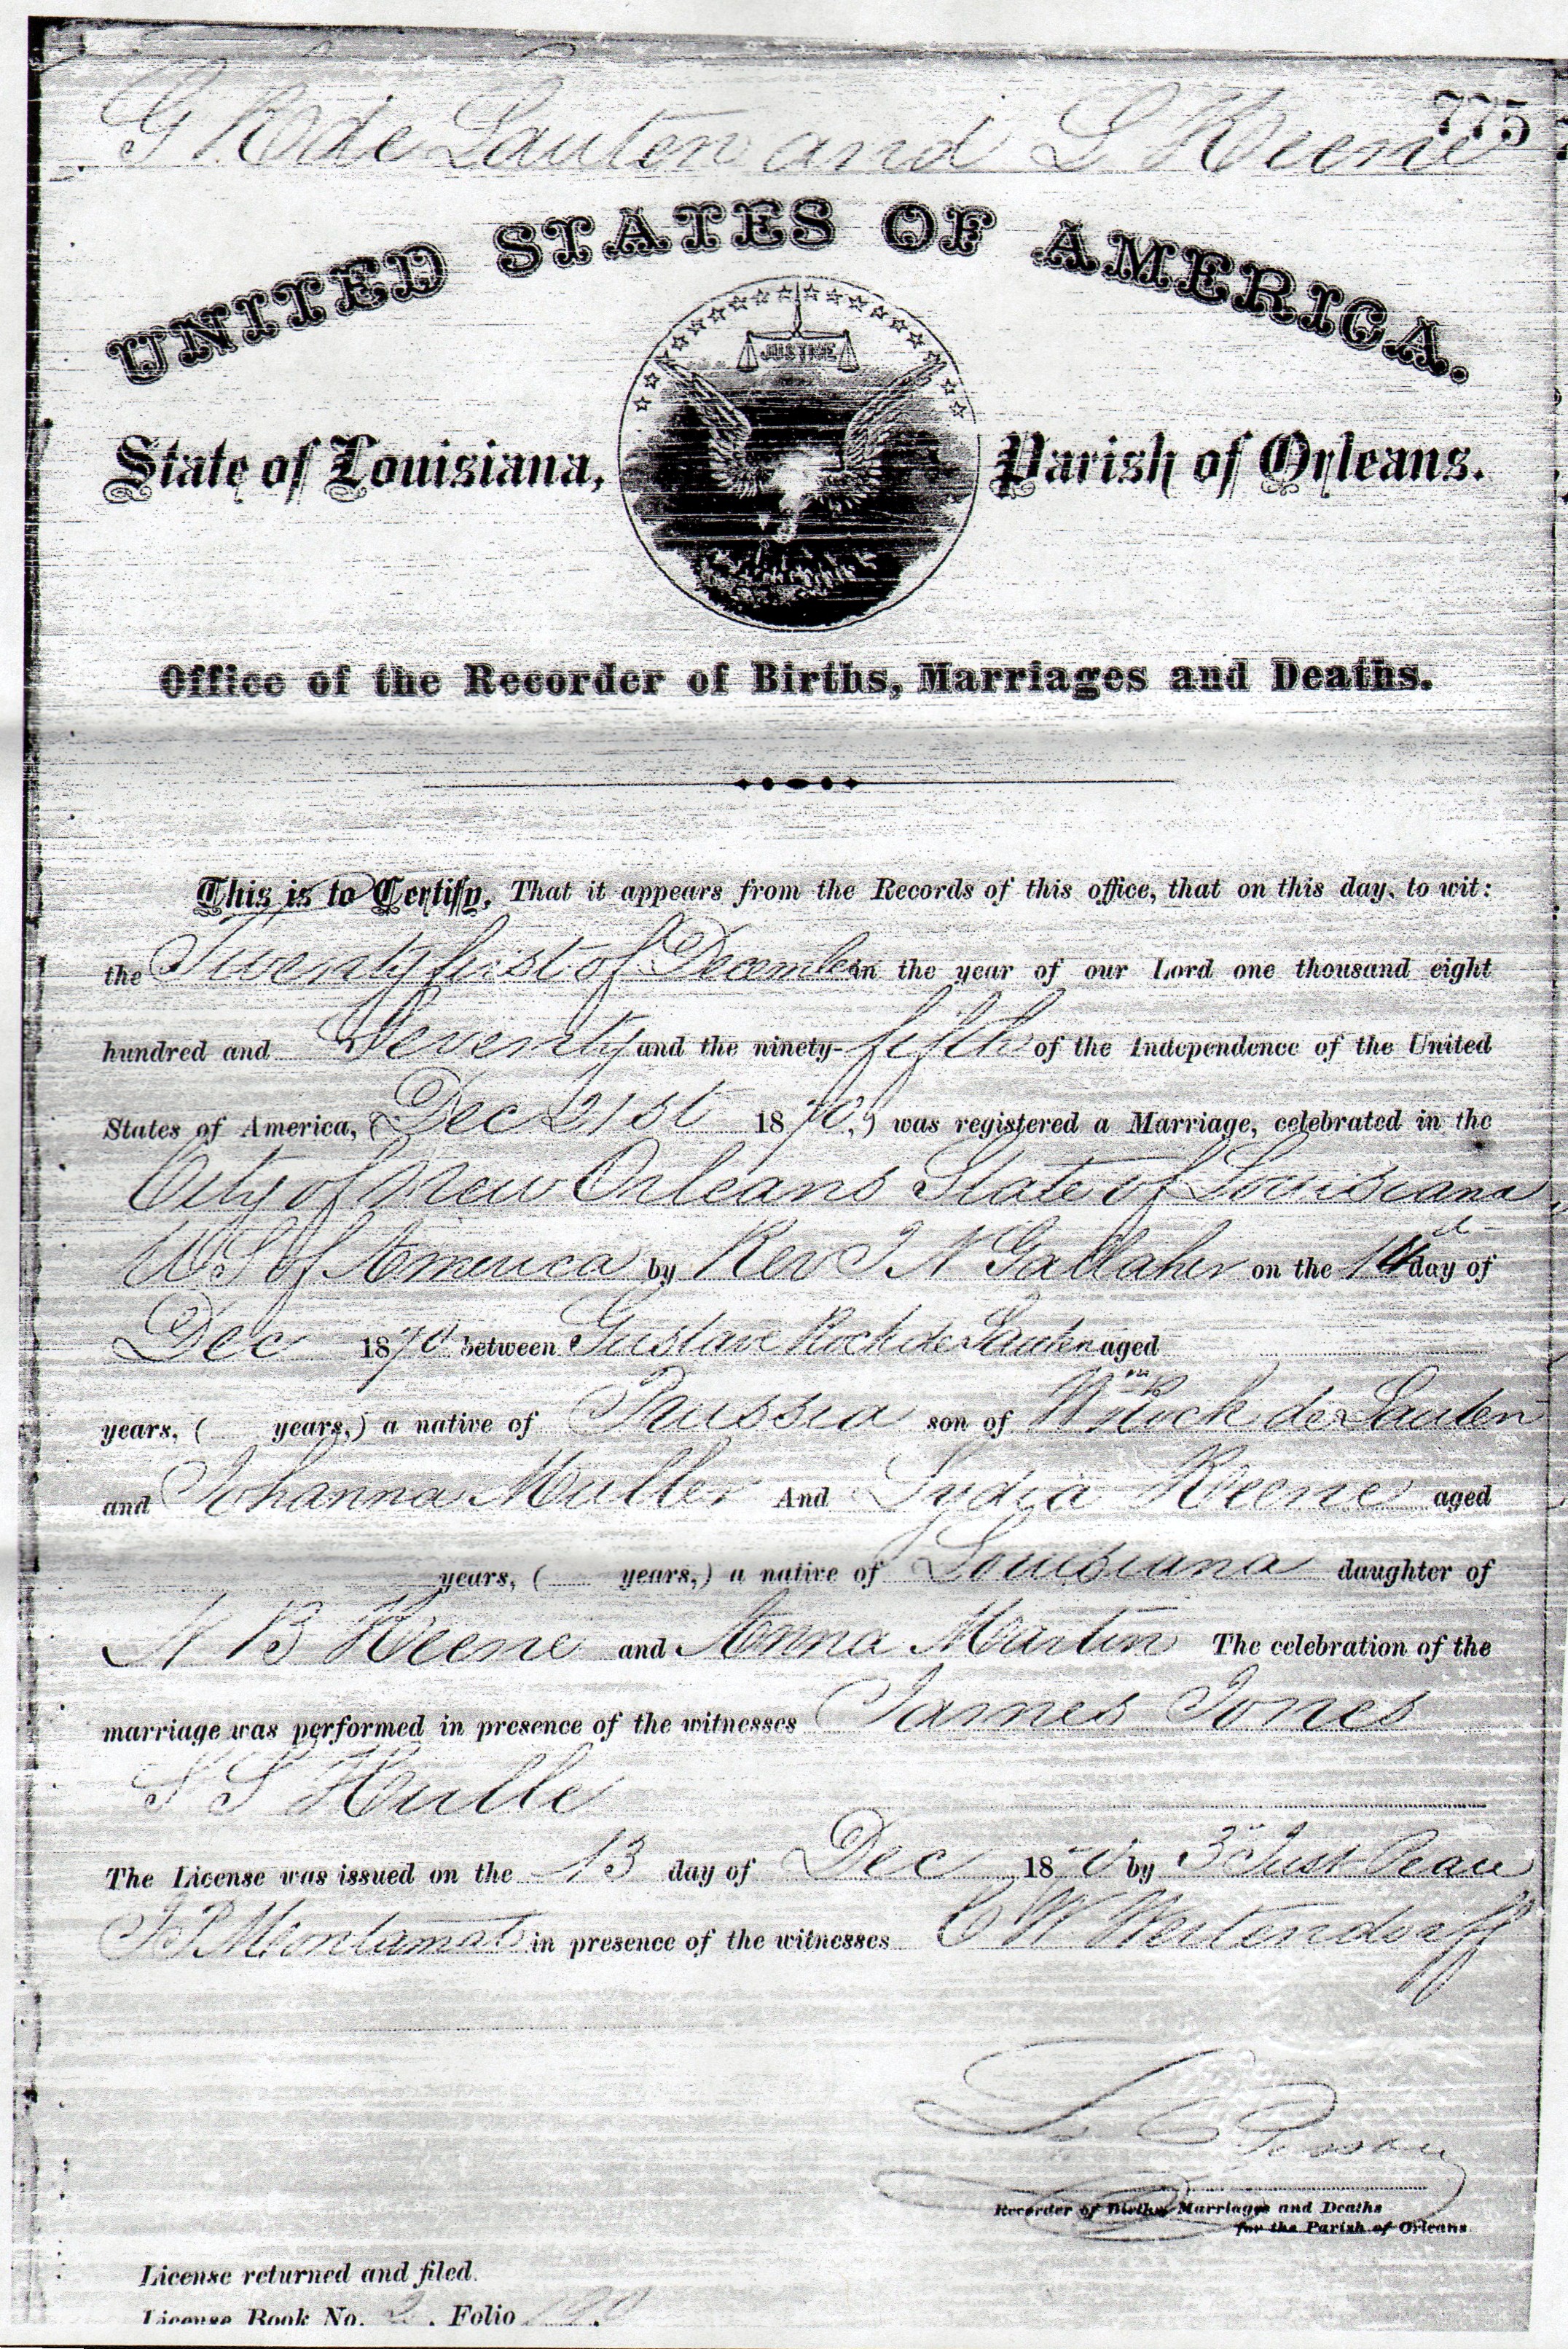 775
G R de Lauten and L Keene
UNITED STATES OF AMERICA.
JUSTICE
State of Louisiana, Parish of Orleans.
Office of the Recorder of Births, Marriages and Deaths.
This is to Certify, That it appears from the Records of this office, that on this day, to wit:
the Twenty first of December in the year of our Lord one thousand eight
hundred and Seventy and the ninety-fifth of the Independence of the United
States of America, (Dec 21st 1870,) was registered a Marriage, celebrated in the
City of New Orleans State of Louisiana
U S of America by Rev J N Gallaher on the 14 day of
Dec 1870 between Gustave Rock de Lauten aged
years, ( years,) a native of Prussia son of Wm Rock de Lauten
and Johanna Muller And Lydia Keene aged
years, ( years,) a native of Louisiana daughter of
N B Keene and Anna Martin The celebration of the
marriage was performed in presence of the witnesses James Jones
S Hulle
The License was issued on the 13 day of Dec 1870 by 3d Just Peace
Montamat in presence of the witnesses C W Westendorff
Recorder of Births Marriages and Deaths
for the Parish of Orleans
License returned and filed.
License Book No. 2. Folio